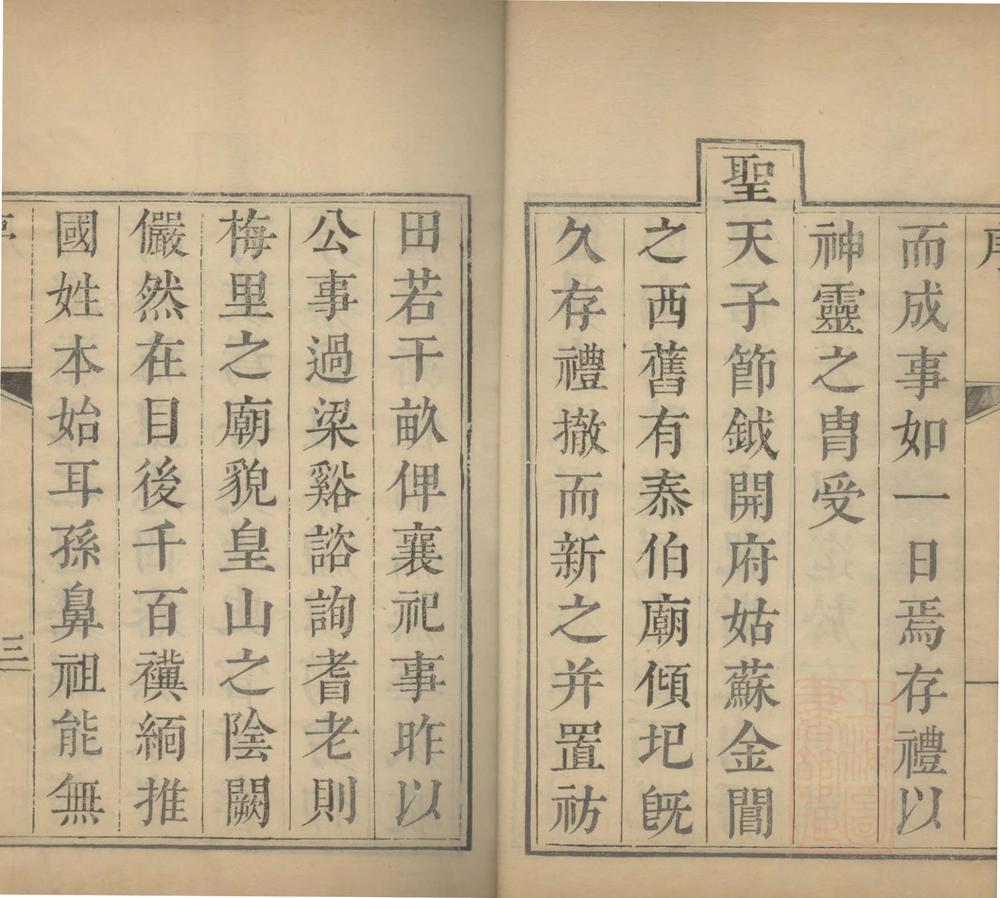 而成事如一日焉存禮以
神靈之冑受
聖天子節鉞開府姑蘇金閶
之西舊有泰伯廟傾圯旣
久存禮撤而新之并置祊
田若干畝俾襄祀事昨以
公事過梁谿諮詢耆老則
梅里之廟貌皇山之陰闕
儼然在目後千百禩緬推
國姓本始耳孫鼻祖能無
三